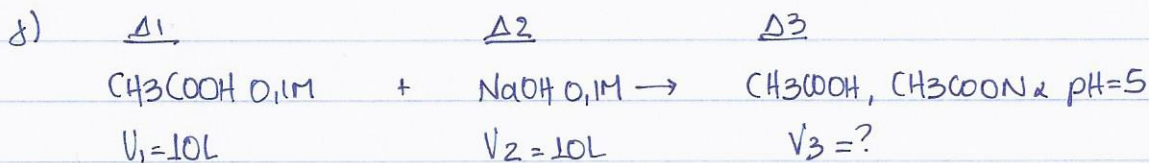 δ) Δ1 Δ2 Δ3
CH3COOH 0,1M + NaOH 0,1M → CH3COOH, CH3COONα pH=5
V1=10L V2=10L V3=?